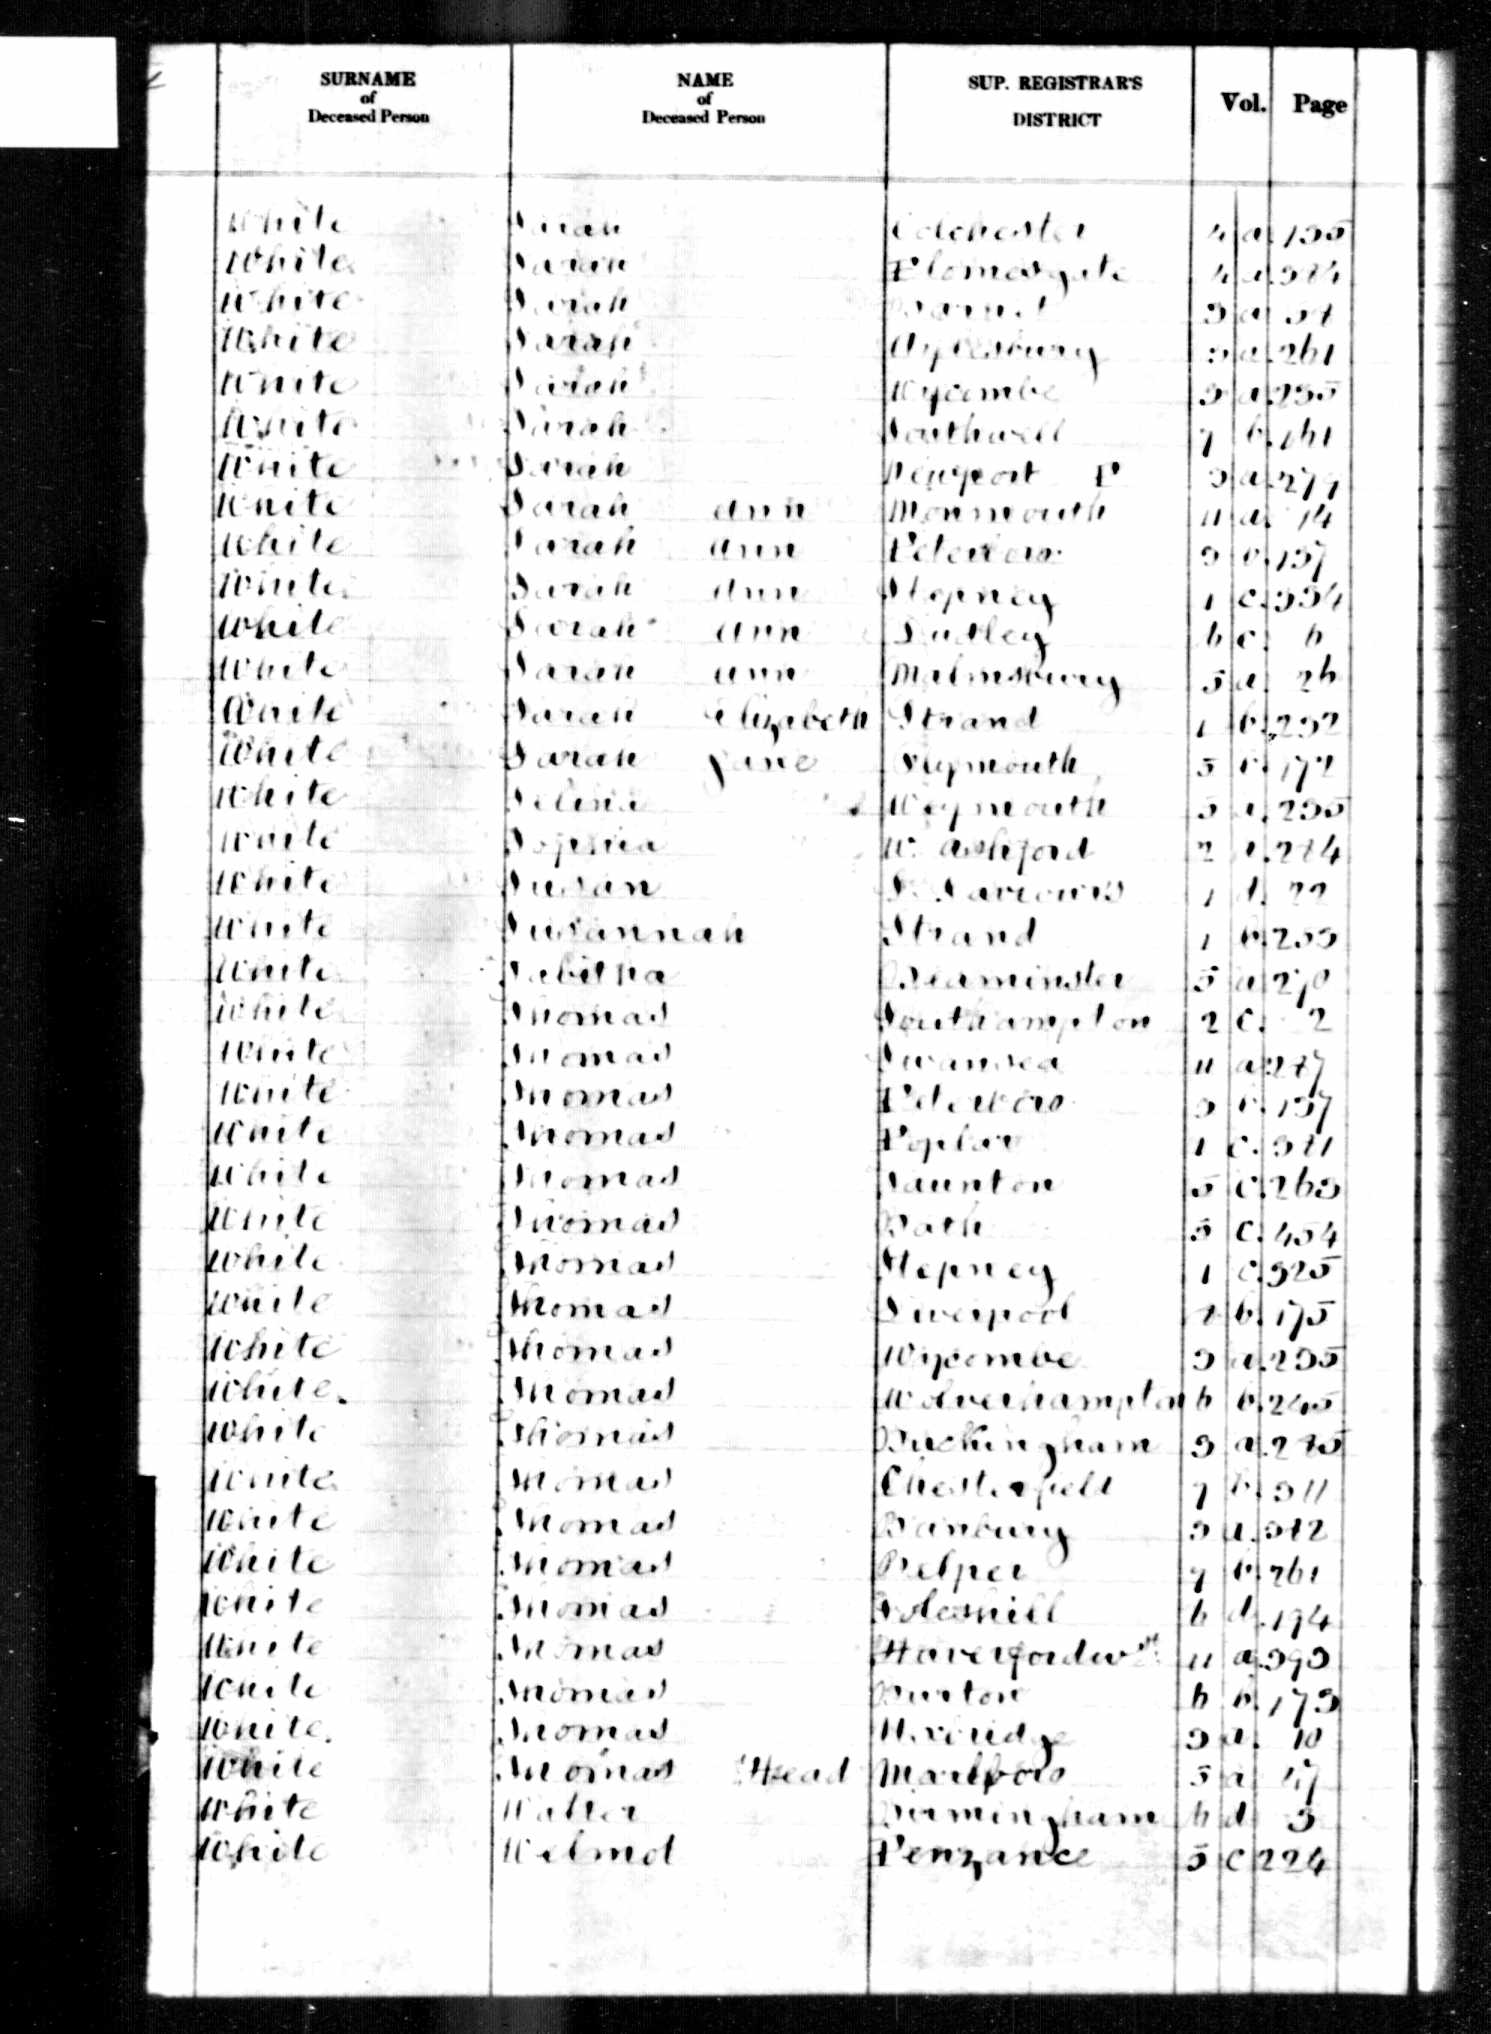 SURNAME of Deceased Person NAME of Deceased Person SUP. REGISTRAR'S DISTRICT Vol. Page
White Sarah Colchester 4 a. 155
White Sarah Plomesgate 4 a. 384
White Sarah Barnet 3 a.
White Sarah Aylesbury 3 a. 261
White Sarah Wycombe 3 a. 235
White Sarah Southwell 7 b. 161
White Sarah Newport P 3 a. 279
White Sarah Ann Monmouth 11 a. 14
White Sarah Ann Peterboro 3 b. 137
White Sarah Ann Stepney 1 c. 334
White Sarah Ann Dudley 6 c. 6
White Sarah Ann Malmsbury 5 a. 26
White Sarah Elizabeth Strand 1 b. 232
White Sarah Jane Plymouth 5 b. 172
White Selina Weymouth 5 a. 235
White Sophia W. Ashford 2 a. 284
White Susan St Saviours 1 d. 22
White Susannah Strand 1 b. 233
White Tabitha Beaminster 5 a 270
White Thomas Southampton 2 c. 2
White Thomas Swansea 11 a 287
White Thomas Peterboro 3 b. 137
White Thomas Poplar 1 c. 381
White Thomas Taunton 5 c. 263
White Thomas Bath 5 c. 454
White Thomas Stepney 1 c. 325
White Thomas Liverpool 8 b. 175
White Thomas Wycombe 3 a. 235
White Thomas Wolverhampton 6 b. 245
White Thomas Buckingham 3 a. 285
White Thomas Chesterfield 7 b. 311
White Thomas Banbury 3 a. 382
White Thomas Belper 7 b. 261
White Thomas Foleshill 6 d. 194
White Thomas Haverfordwst 11 a. 393
White Thomas Burton 6 b. 173
White Thomas Uxbridge 3 a. 10
White Thomas Head Marlboro 5 a 47
White Walter Birmingham 6 d 3
White Welmot Penzance 5 c 224